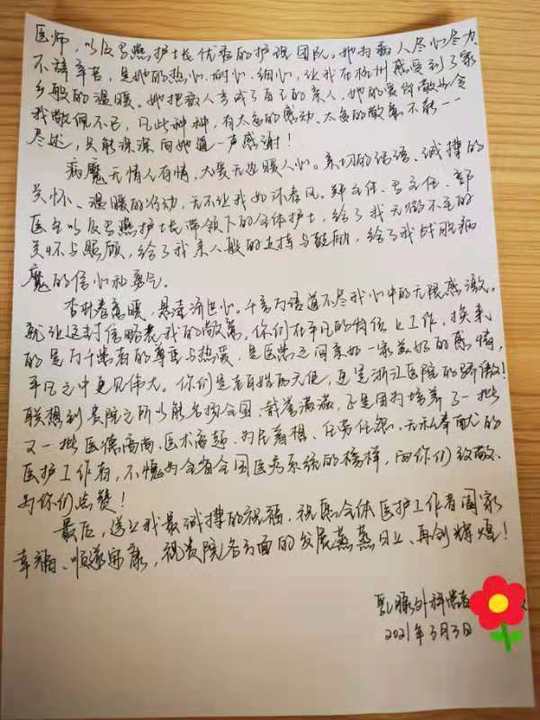 医师，以及吕燕护士长优秀的护理团队，她为病人尽心尽力，
不辞辛苦，是她的热心、耐心、细心，让我在杭州感受到了家
乡般的温暖。她把病人当成了自己的亲人，她的爱岗敬业令
我敬佩不已，凡此种种，有太多的感动，太多的敬意不能一一
尽述，只能深深向她道一声感谢！
病魔无情人有情，大爱无边暖人心。亲切的话语、诚挚的
关怀、温暖的行动，无不让我如沐春风，韩主任、吕主任、郭
医生以及吕燕护士长带领下的全体护士，给了我无微不至的
关怀与照顾，给了我亲人般的支持与鼓励，给了我战胜病
魔的信心和勇气。
杏林春意暖，悬壶济世心。千言万语道不尽我心中的无限感激。
就让这封信略表我的敬意，你们在平凡的岗位上工作，换来
的是万千患者的尊重与热爱，是医患之间亲如一家美好的感情，
平凡之中更见伟大。你们是百姓的天使，更是浙江医院的骄傲！
联想到贵院之所以能名扬全国、载誉满满，正是因为培养了一批
又一批医德高尚、医术高超、为民着想、任劳任怨、无私奉献的
医护工作者，不愧为全省全国医疗系统的榜样，向你们致敬，
为你们点赞！
最后，送上我最诚挚的祝福，祝愿全体医护工作者阖家
幸福、顺遂安康，祝贵院各方面的发展蒸蒸日上、再创辉煌！
乳腺外科患者
2021年3月3日